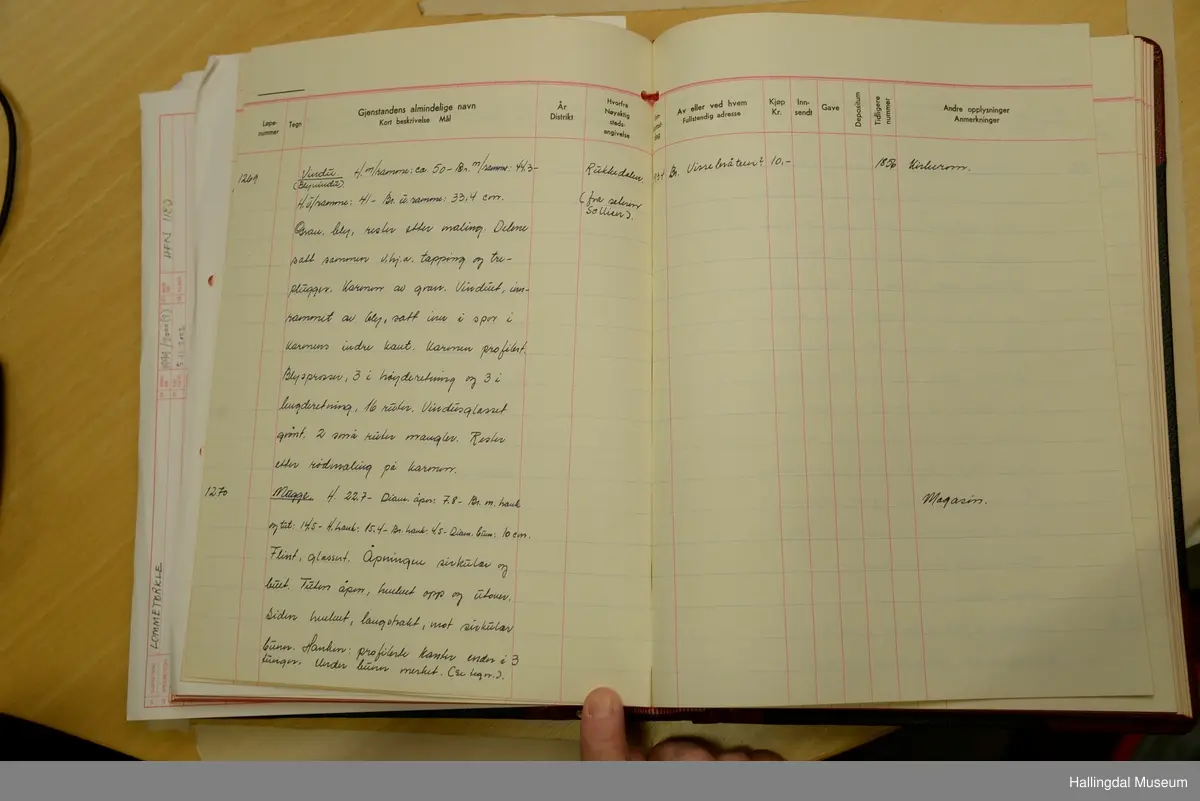 Løpe-
nummer
Tegn
Gjenstandens almindelige navn
Kort beskrivelse Mål
År
Distrikt
Hvorfra
Nøyaktig
steds-
angivelse
Av eller ved hvem
Fullstendig adresse
Kjøp
Kr.
Inn-
sendt
Gave
Depositum
Tidligere
nummer
Andre opplysninger
Anmerkninger
1269
Vindu H. m/ramme: ca 50- Br. m/ramme: 44.3-
(Blyvindu).
H. u/ramme: 41- Br. u. ramme: 33,4 cm.
Gran. bly, rester etter maling. Delene
satt sammen v.hj.a. tapping og tre-
plugger. Karmen av gran. Vinduet, inn-
rammet av bly, satt inn i spor i
karmens indre kant. Karmen profilert.
Blysprosser, 3 i høyderetning og 3 i
lengderetning, 16 ruter. Vindusglasset
grønt. 2 små ruter mangler. Rester
etter rødmaling på karmen.
Rukkedalen
(fra seteren
10.-
1856
Kirkerom.
1270
Mugge H. 22.7- Diam. åpn: 7.8- Br. m. hank
og tut: 14.5- H. hank: 15.4- Br. hank: 4.5- Diam. bunn: 10 cm.
Flint, glassert. Åpningen sirkulær og
buet. Tuten åpen, hvelvet opp og utover.
Siden hvelvet, langstrakt, mot sirkulær
bunn. Hanken: profilerte kanter ender i 3
tunger. Under bunn merket. (Se tegn.).
Magasin.
LOMMETØRKLE